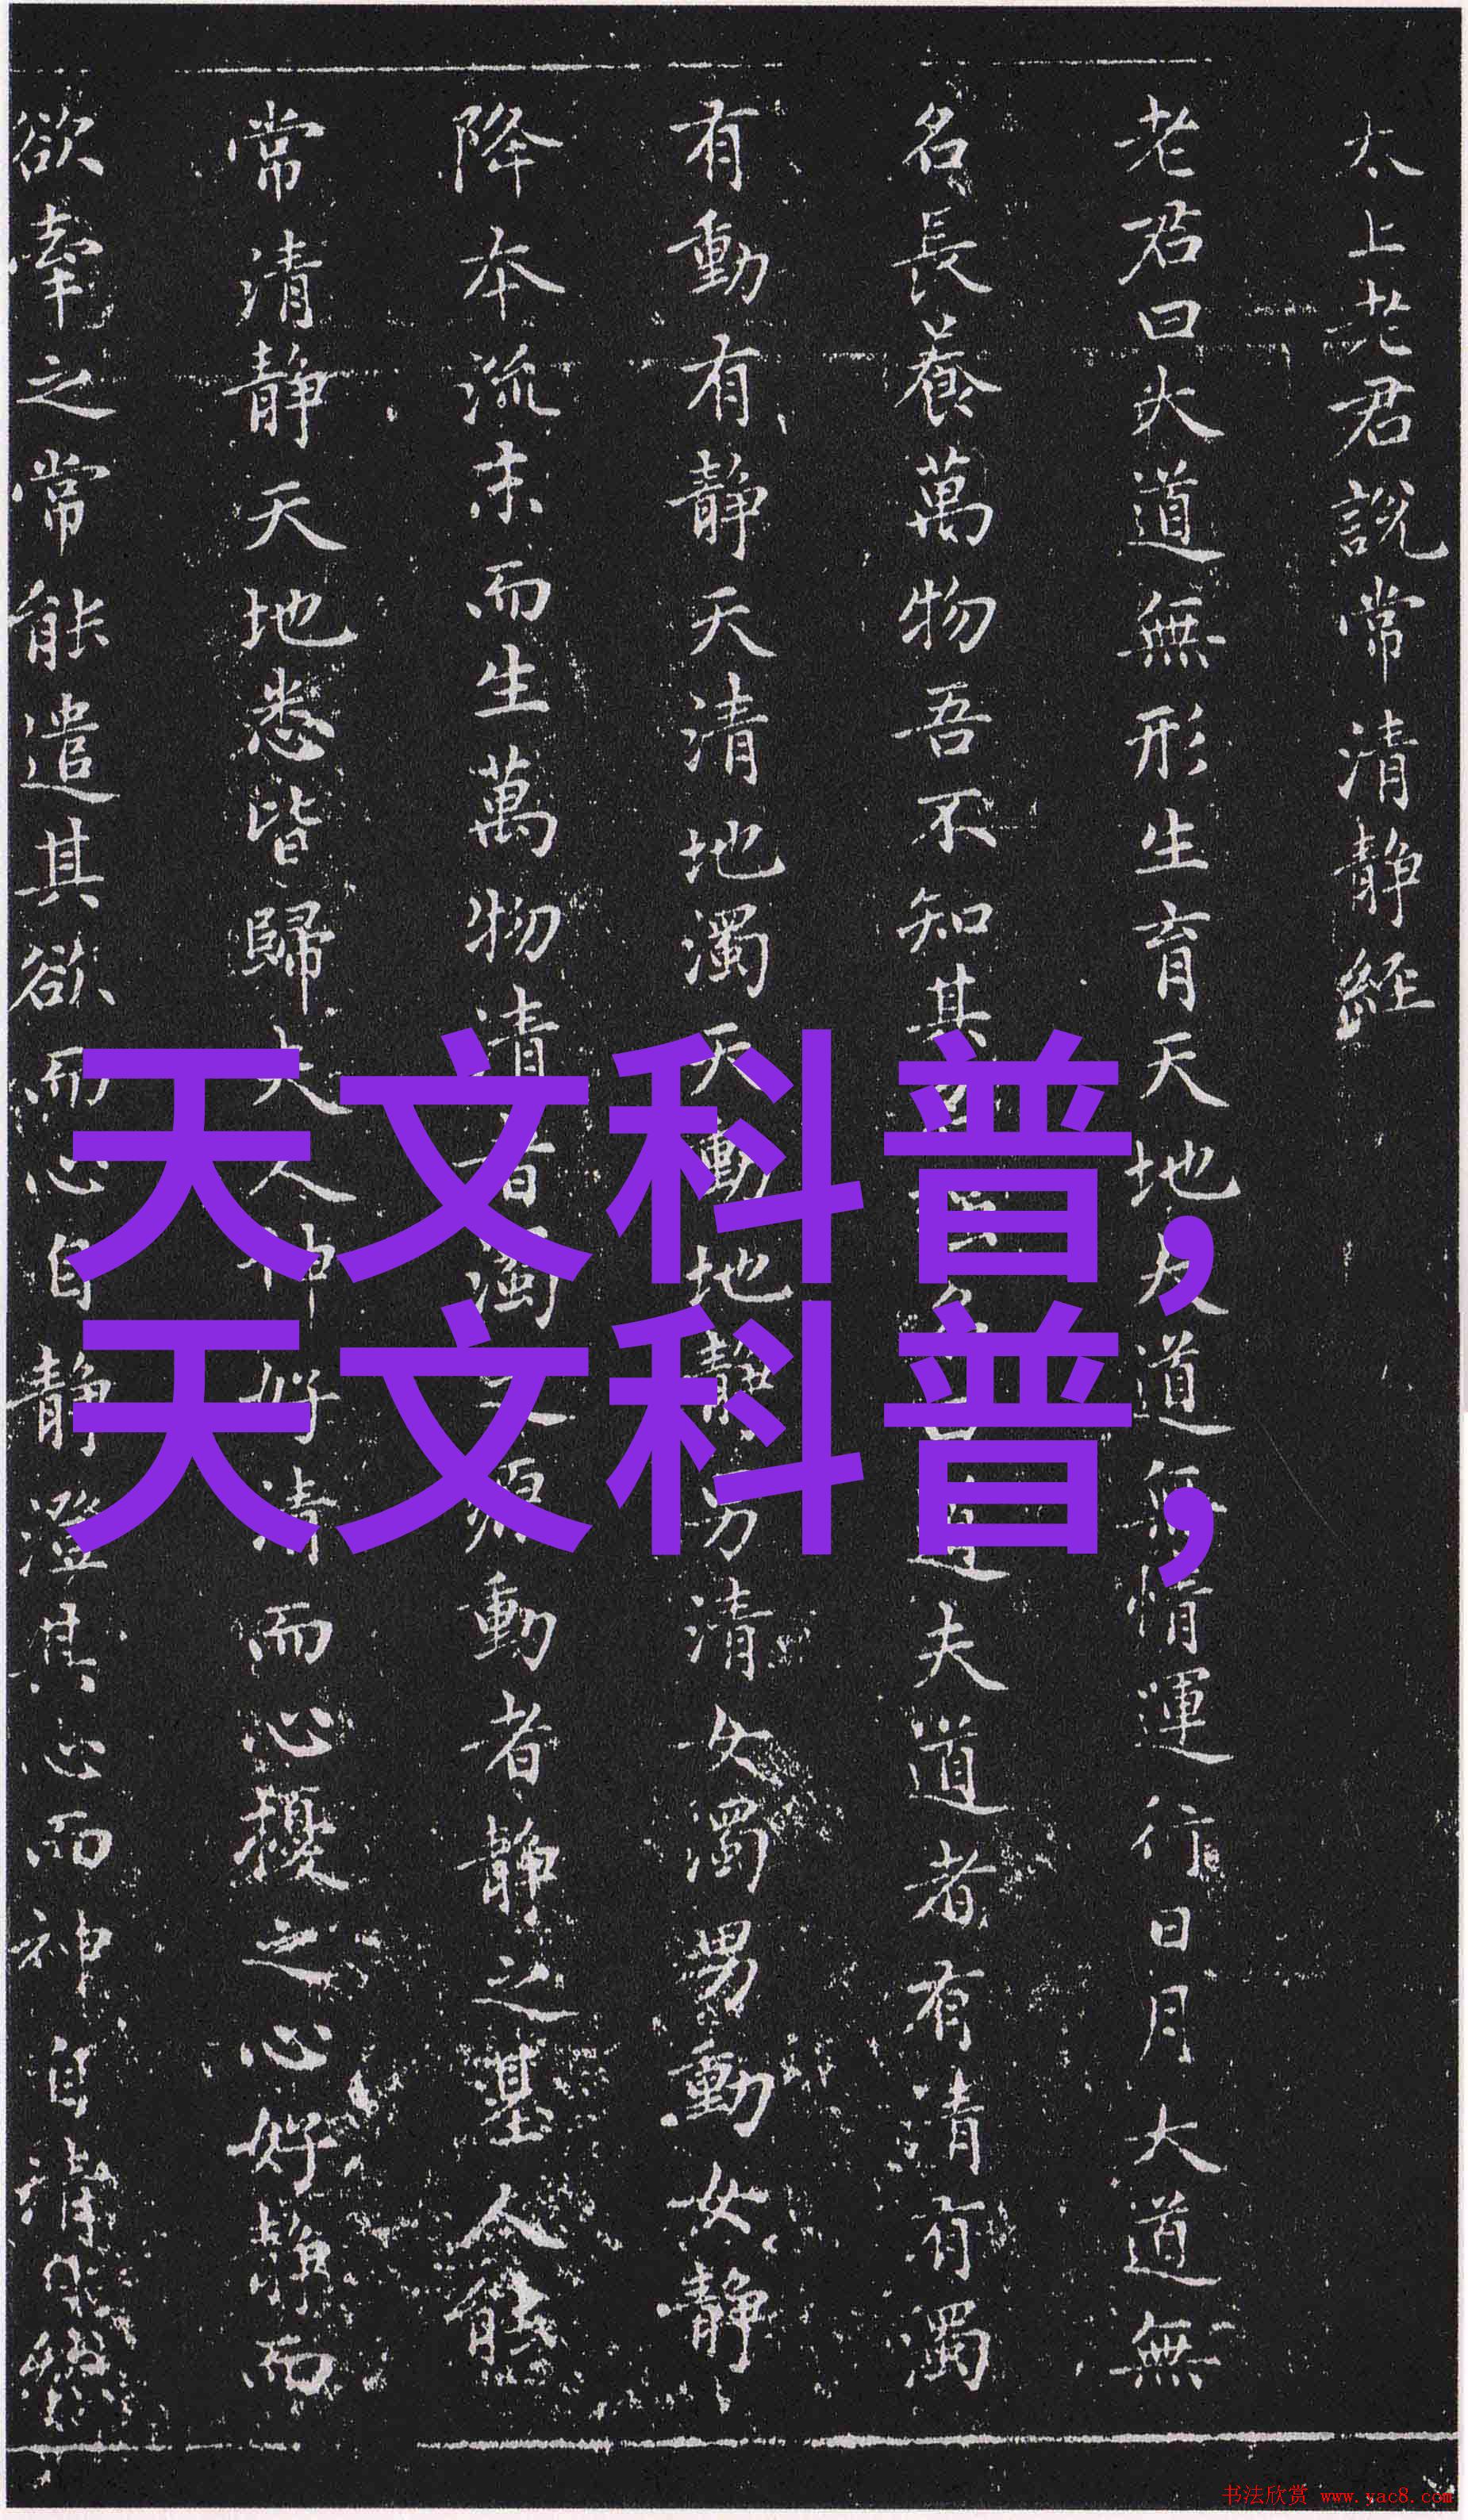 太上老君說常清静經
老君曰大道無形生育天地大道無情運行日月大道無
名長養萬物吾不知其名強名曰道夫道者有清有濁
有動有静天清地濁天動地静男清女濁男動女静
降本流末而生萬物清者濁之源動者静之基人能
常清静天地悉皆歸夫人神好清而心擾之心好静而
欲牽之常能遣其欲而心自静澄其心而神自清
天文科普,
天文科普,
书法欣赏 www.yac8.com